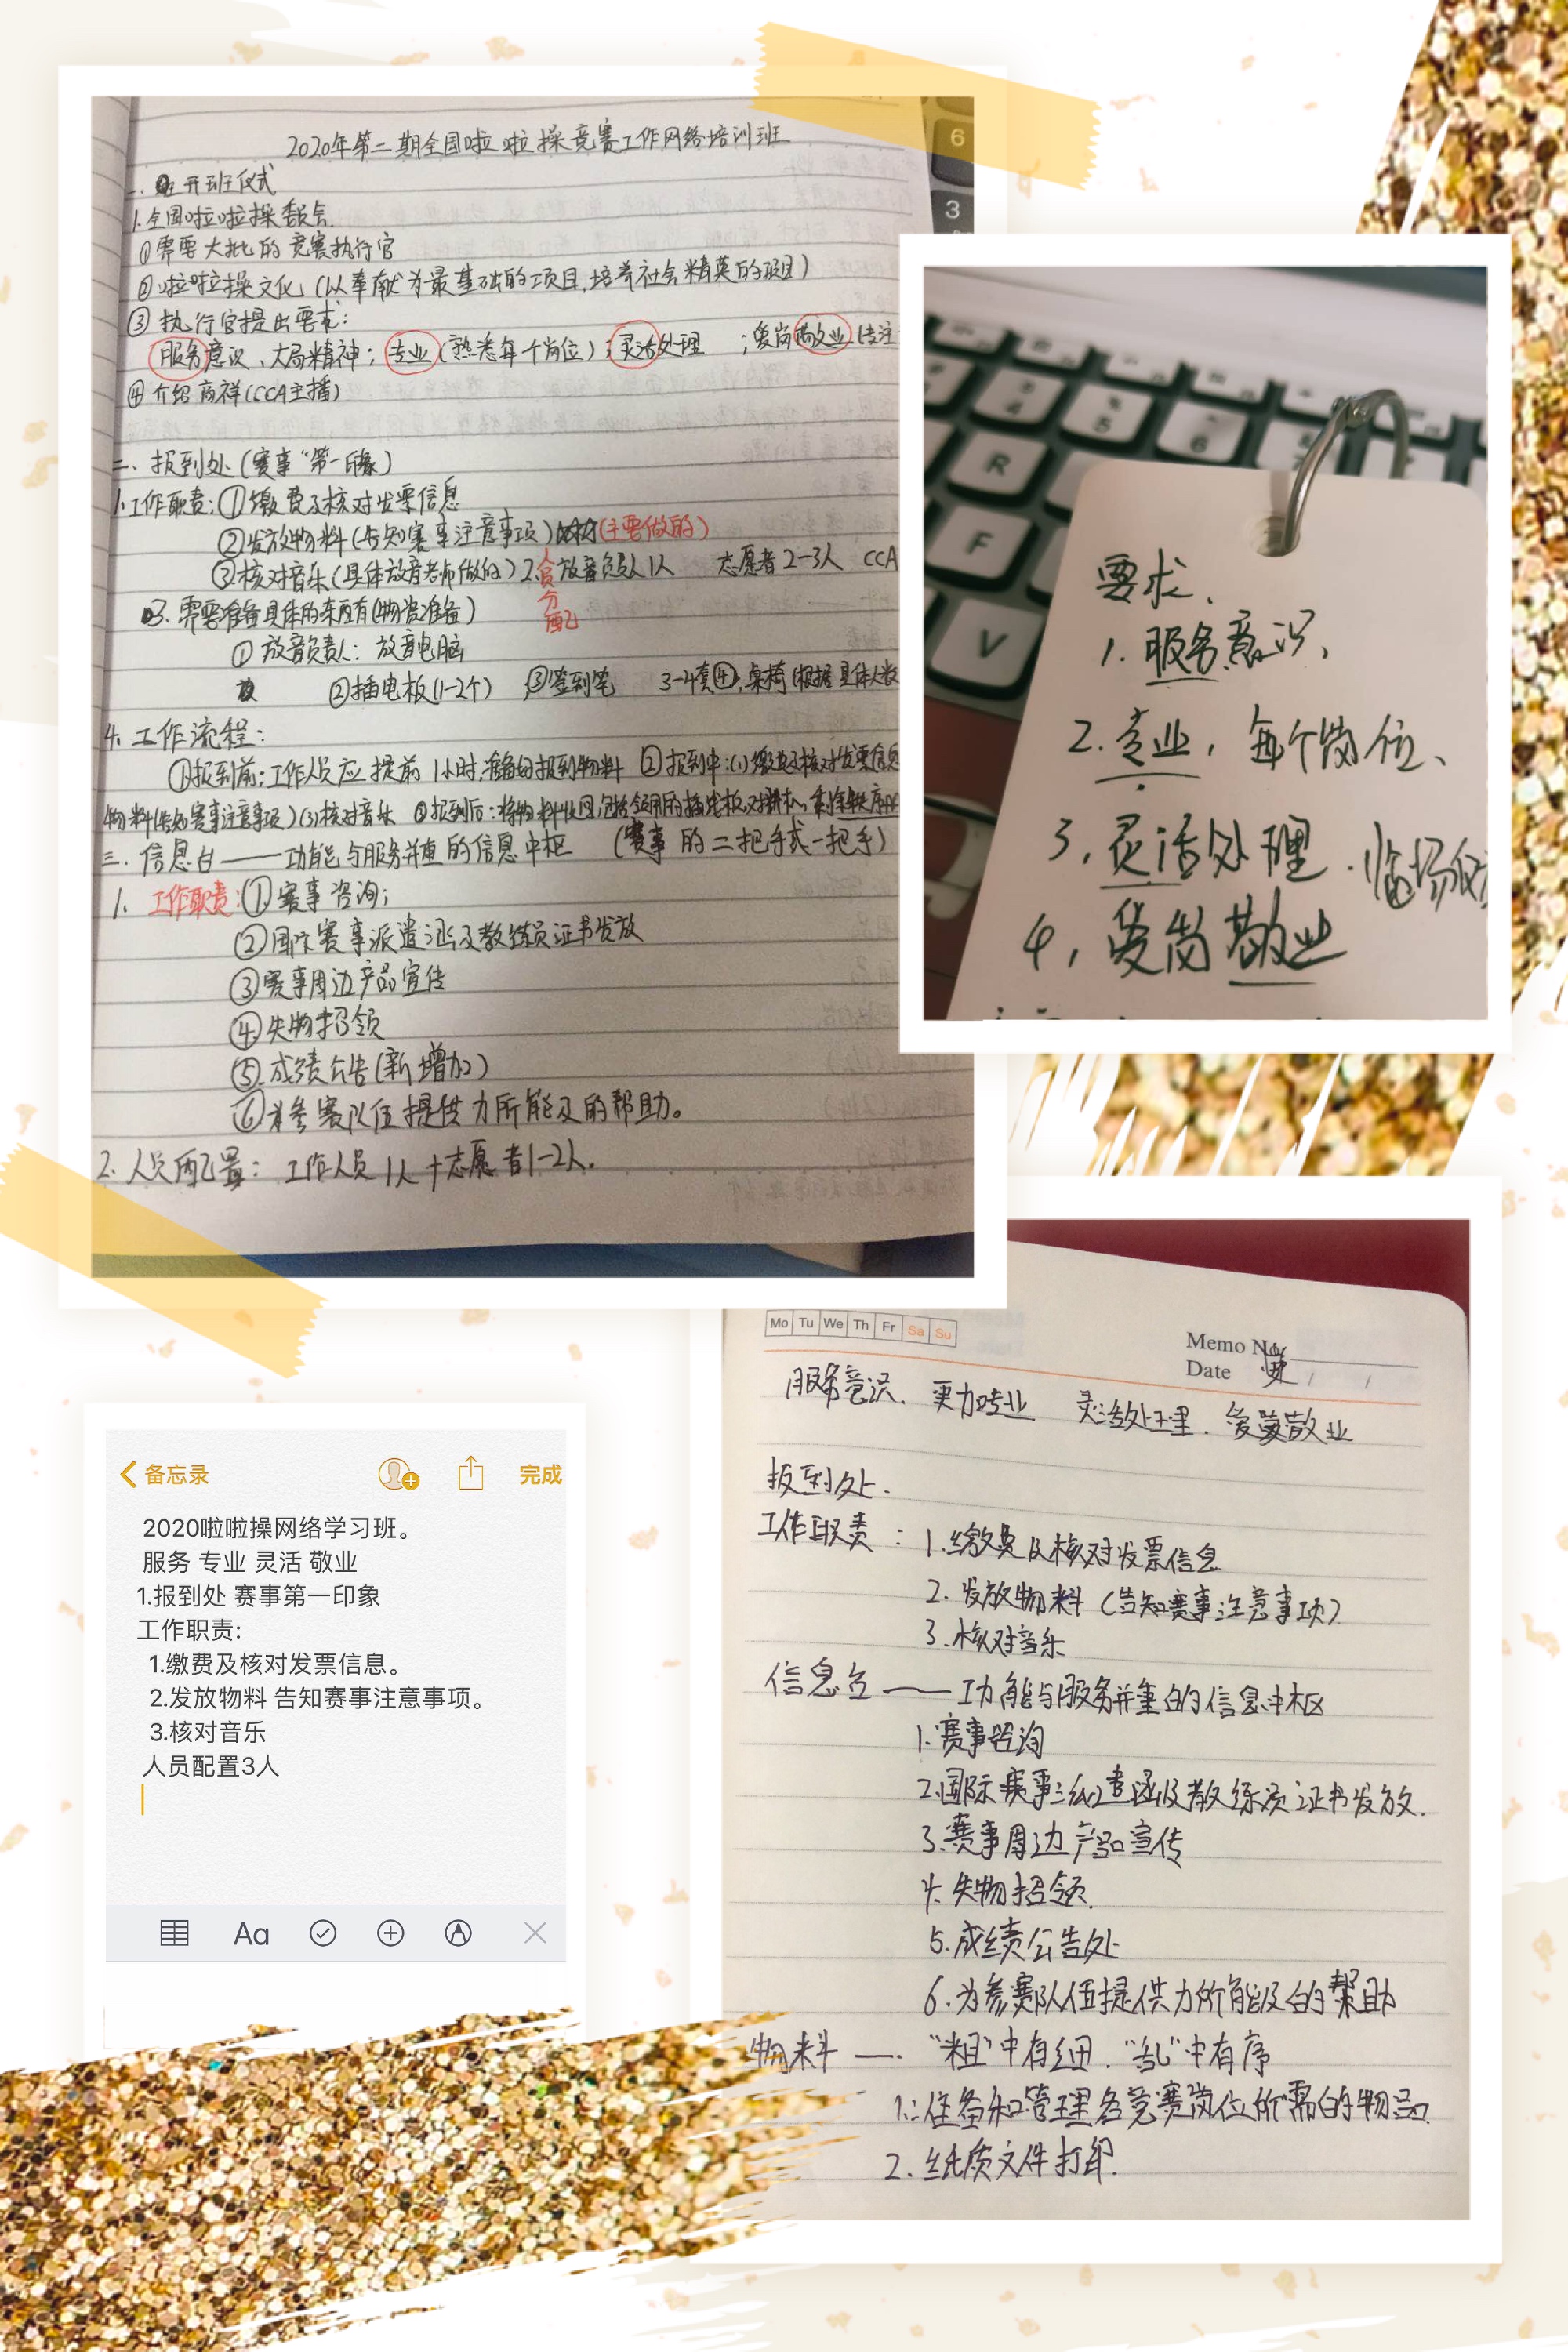 2020年第二期全国啦啦操竞赛工作网络培训班
一. 开班仪式
1.全国啦啦操委员会.
①需要大批的竞赛执行官
②啦啦操文化 (以奉献为最基础的项目,培养社会精英的项目)
③ 执行官提出要求:
服务意识、大局精神; 专业(熟悉每个岗位); 灵活处理 ;爱岗敬业(专注
④ 介绍 商祥(CCA主播)
二、报到处(赛事"第一印象)
1.工作职责:①缴费及核对发票信息
②发放物料(告知赛事注意事项) (主要做的)
③核对音乐(具体放音老师做的) 2.人员分配 放音负责人1人 志愿者2-3人 CCA
3. 需要准备具体的东西有(物资准备)
① 放音负责人: 放音电脑
②插电板(1-2个) ③签到笔 3-4套④.桌椅(根据具体人数
4. 工作流程:
①报到前:工作人员应提前1小时,准备好报到物料 ②报到中:(1)缴费及核对发票信息
物料(告知赛事注意事项)(3)核对音乐 ③报到后:将物料收回,包括领用的插电板,对讲机,剩余秩序册
三. 信息台——功能与服务并重的信息中枢 (赛事的二把手或一把手)
1. 工作职责:①赛事咨询;
②国际赛事派遣函及教练员证书发放
③赛事周边产品宣传
④失物招领
⑤成绩公告(新增加)
⑥为参赛队伍提供力所能及的帮助。
2. 人员配置: 工作人员1人+志愿者1-2人.
6
3
4
5
6
R
F
V
要求、
1. 服务意识、
2. 专业, 每个岗位、
3. 灵活处理. 临场
4, 爱岗敬业
Mo Tu We Th Fr Sa Su
Memo No.
Date / /
服务意识、更加专业 灵活处理. 爱岗敬业
报到处.
工作职责: 1.缴费及核对发票信息
2. 发放物料(告知赛事注意事项)
3.核对音乐
信息台——功能与服务并重的信息中枢
1.赛事咨询
2.国际赛事派遣函及教练员证书发放.
3.赛事周边产品宣传
4. 失物招领.
5.成绩公告处
6.为参赛队伍提供力所能及的帮助
物料 —. "粗"中有细. "乱"中有序
1.准备和管理各竞赛岗位所需的物品.
2. 纸质文件打印.
备忘录 完成
2020啦啦操网络学习班。
服务 专业 灵活 敬业
1.报到处 赛事第一印象
工作职责:
1.缴费及核对发票信息。
2.发放物料 告知赛事注意事项。
3.核对音乐
人员配置3人
Aa